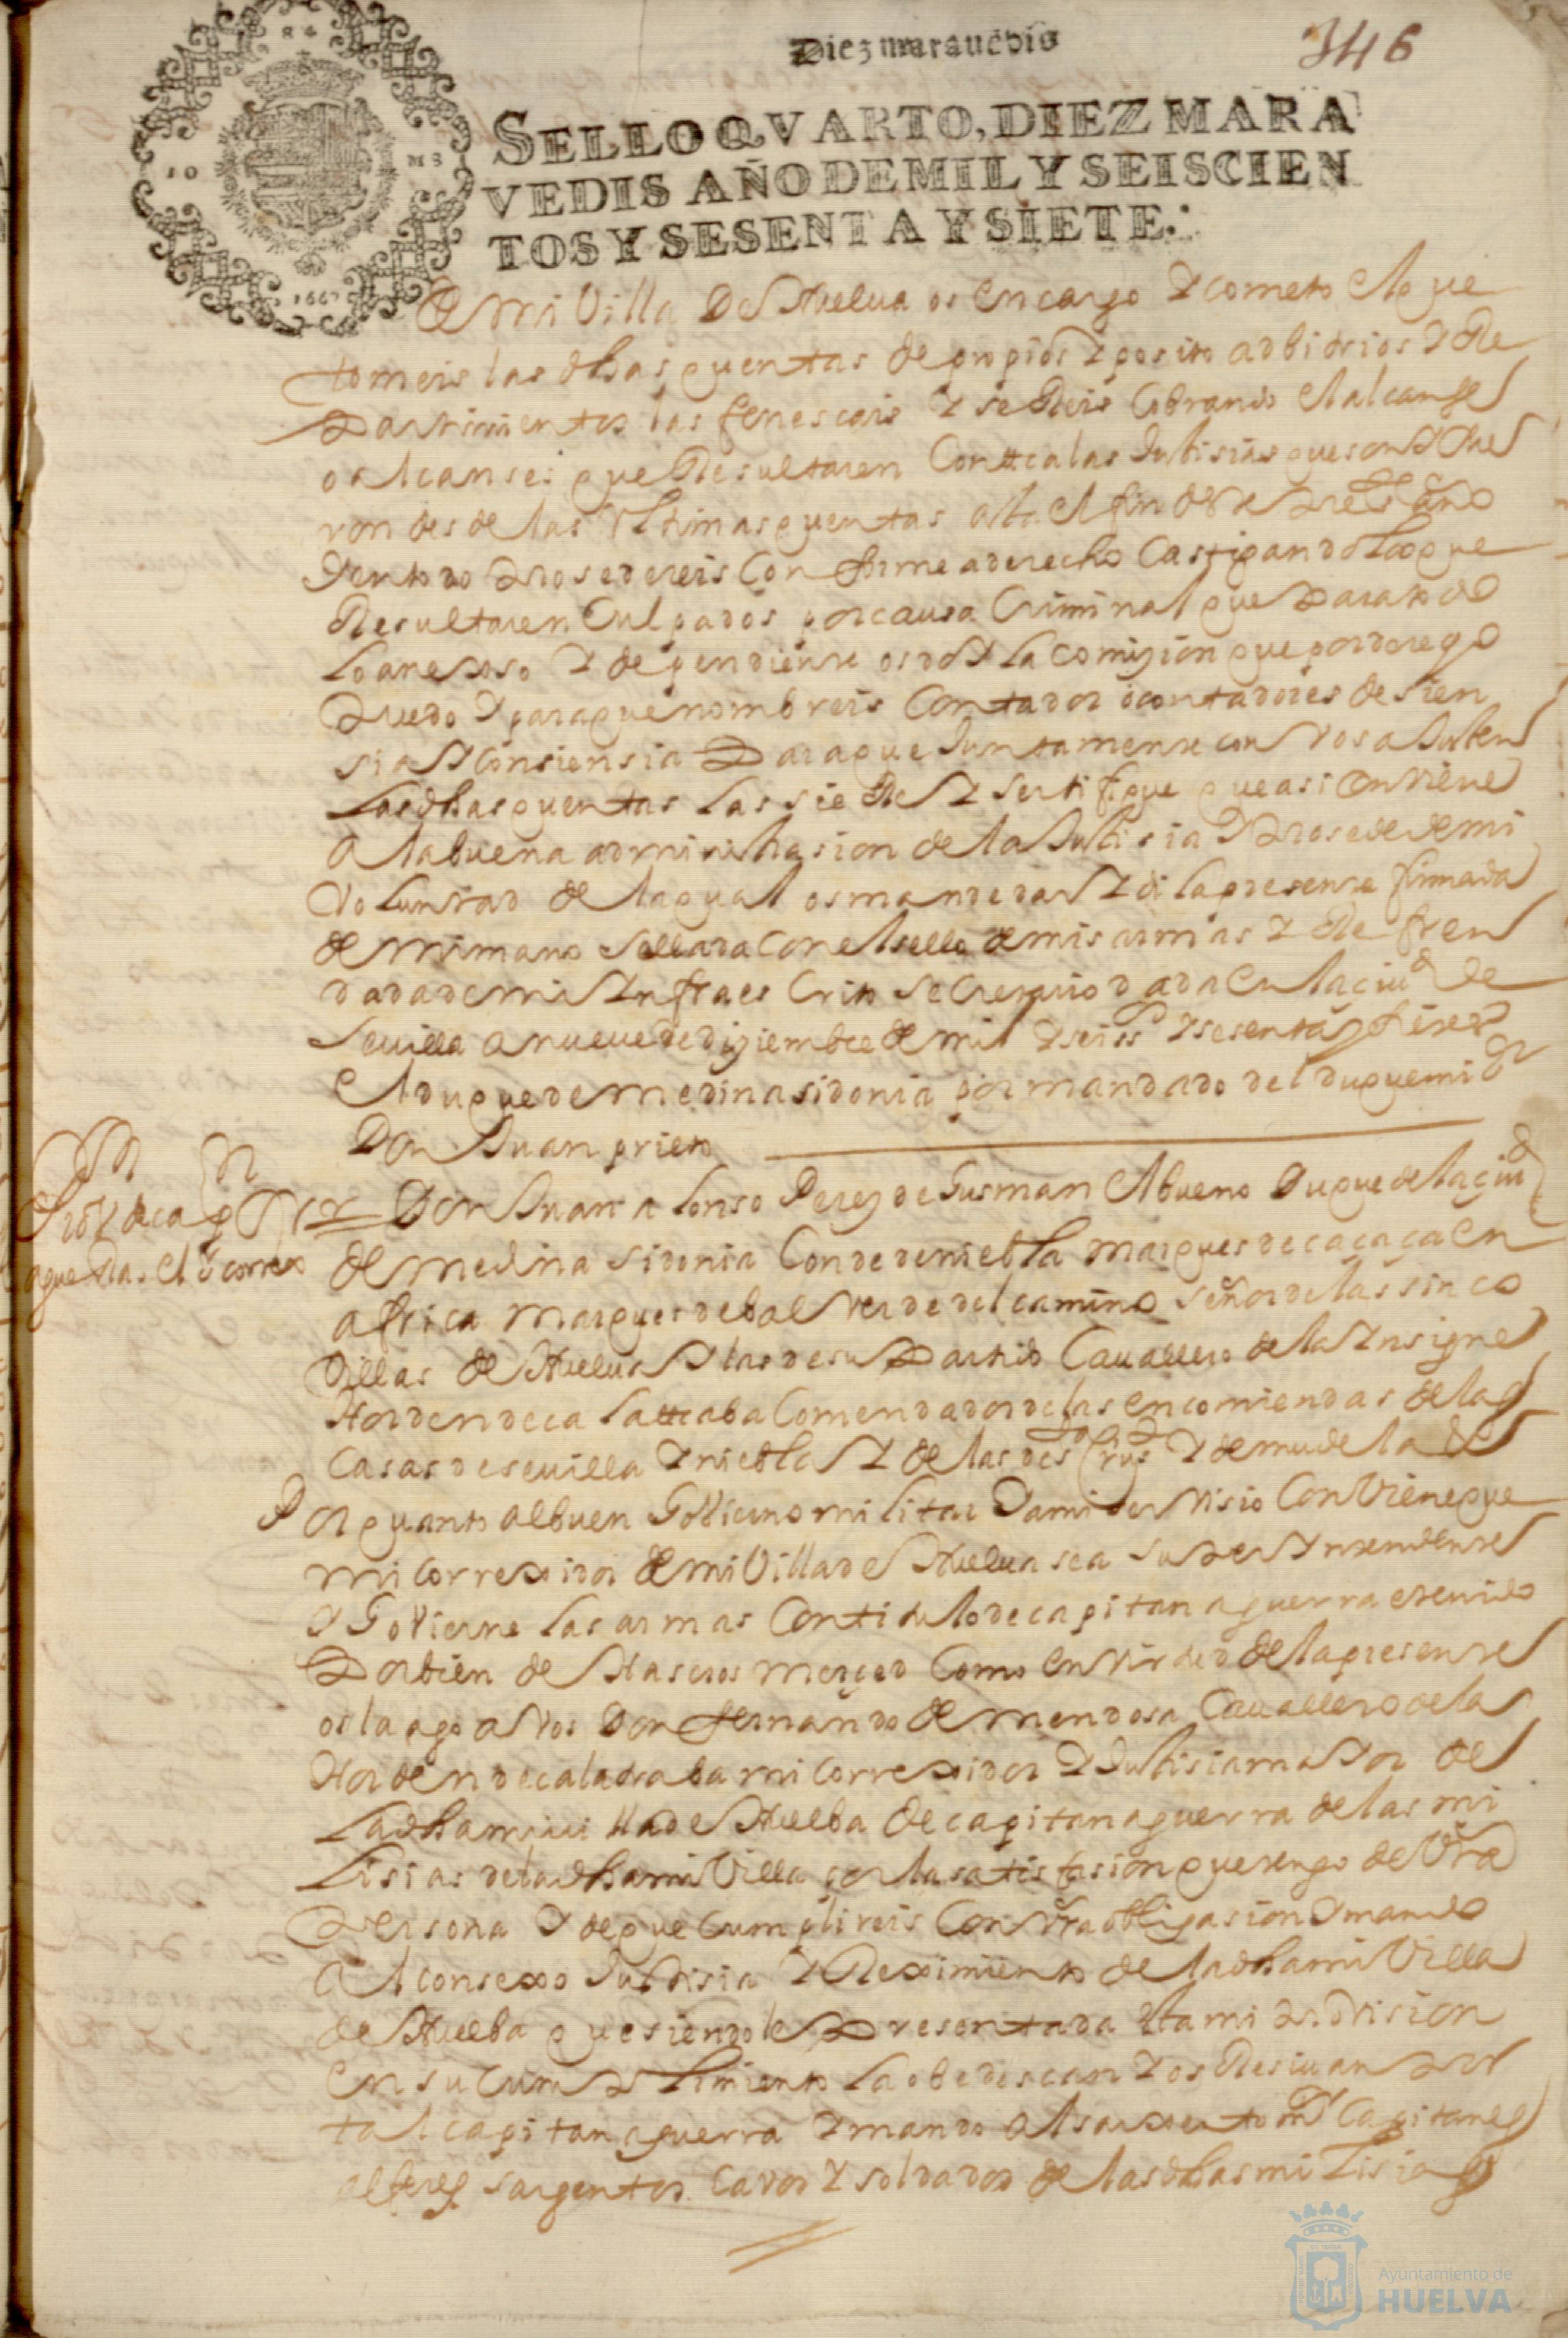 Diez marauedis
346
SELLO QVARTO, DIEZ MARA
VEDIS AÑO DE MIL Y SEISCIEN
TOS Y SESENTA Y SIETE.
1667
de mi Villa de Huelua os encargo y cometo el que
tomeis las dhas quentas de propios y posito adbitrios y Re
partimientos las fenescais y sedeis cobrando el alcanse
o alcanses que Resultaren Contra las Justisias que
ron desde las Vltimas quentas asta el fin deste preste año
y en todo prosedereis Conforme a derecho Castigando los que
Resultaren Culpados por causa Criminal que para todo
lo anexo y dependiente os doy la comision que por derecho
puedo y para que nombreis Contador o contadores de sien
sia y Consiensia para que Juntamente con Vos ajusten
las dhas quentas las y sertifique que asi conViene
a la buena administrasion de la Justisia y prosede de mi
Voluntad de la qual os mande dar y di la presente firmada
de mi mano sellada con el sello de mis armas y Refren
dada de mi Infraescrito secretario dada en la ciud de
Seuilla a nueue de diziembre de mil y seiss y sesenta y seis
El duque de Medina sidonia por mandado del duque mi sr
Don Juan prieto
Don Juan alonso Perez de Gusman el bueno Duque de la ciud
de Medina Sidonia Conde de niebla Marques de caçaça en
africa Marques de balverde del camino señor de las sinco
Villas de Huelua y las de su partido Cauallero de la Insigne
Horden de calatraba Comendador de las encomiendas de las
Casas de seuilla y niebla y de las de y de mudela
Por quanto al buen Govierno militar y a mi servisio ConViene que
mi Correxidor de mi Villa de Huelua sea superIntendente
y Govierne las armas Con titulo de capitan a guerra e tenido
por bien de Haseros merced Como en Virtud de la presente
os la ago a Vos Don fernando de Mendosa Cauallero de la
Horden de calatraba mi Correxidor y Justisia mayor de
la dha mi villa de Huelba de capitan a guerra de las mi
lisias de la dha mi Villa por la satisfasion que tengo de Vra
persona y de que Cumplireis Con Vra obligasion y mando
al consexo Justisia y Reximiento de la dha mi Villa
de Huelba que siendoles presentada esta mi provision
en su Cumplimiento la obedescan y os Resivan por
tal capitan a guerra y mando al sarxento mr Capitanes
alferes sargentos Cavos y soldados de las dhas milisias
Ayuntamiento de
HUELVA